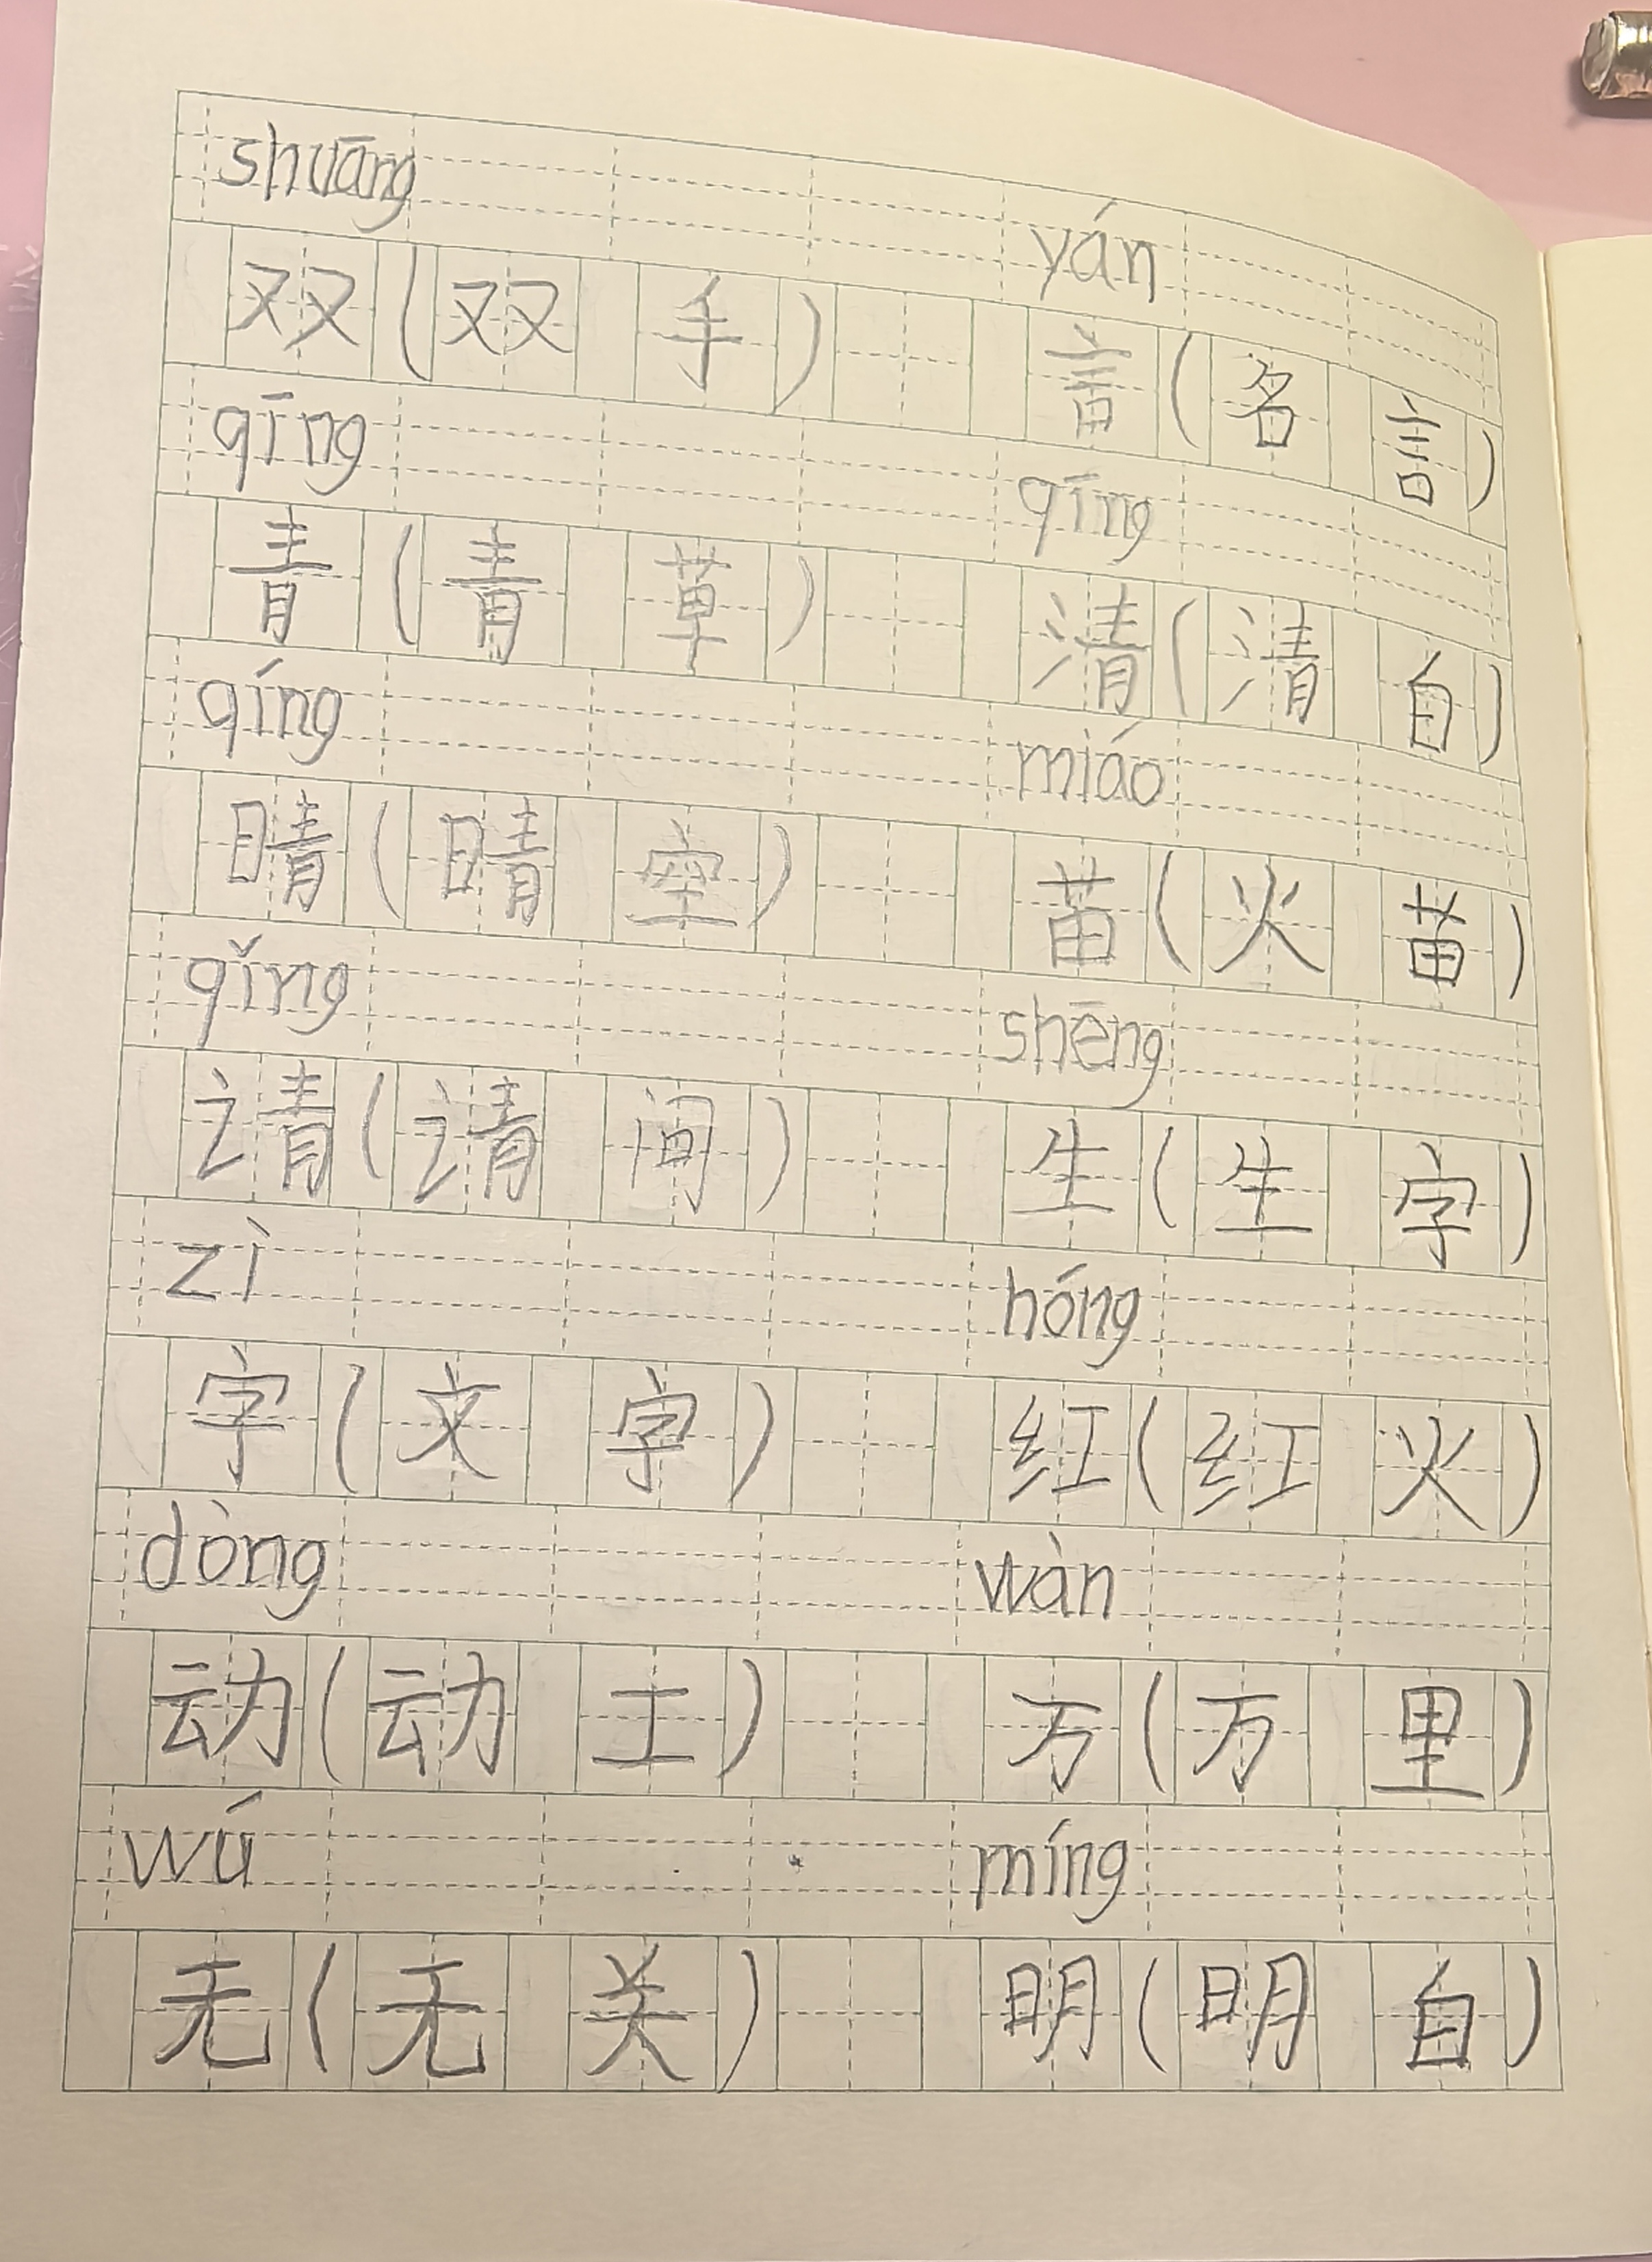 shuāng yán
双(双手) 言(名言)
qīng qīng
青(青草) 清(清白)
qíng miáo
晴(晴空) 苗(火苗)
qǐng shēng
请(请问) 生(生字)
zì hóng
字(文字) 红(红火)
dòng wàn
动(动工) 万(万里)
wú míng
无(无关) 明(明白)